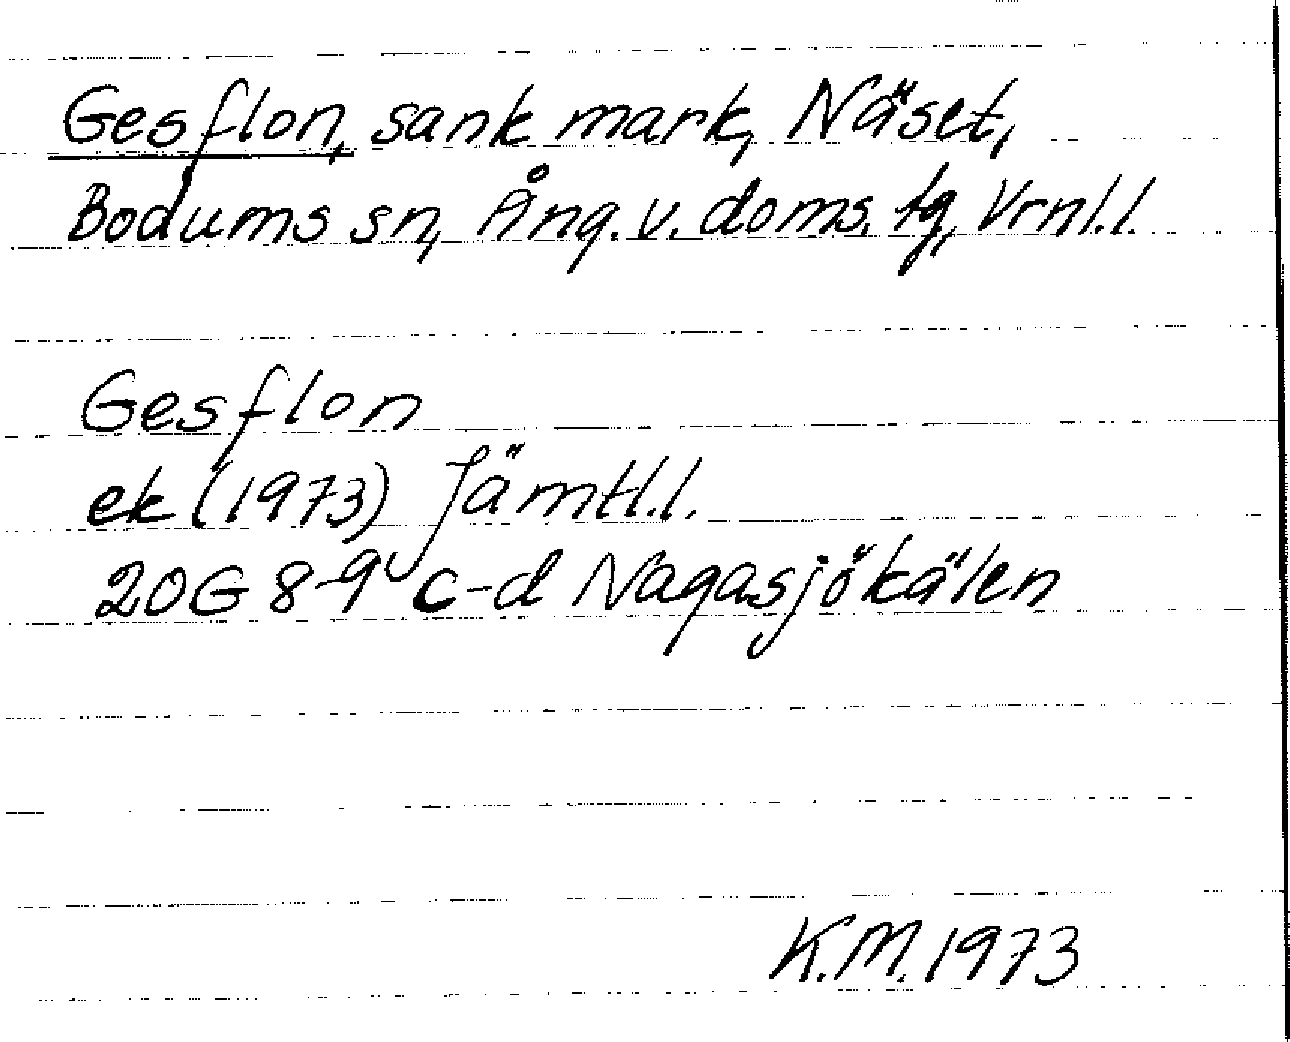 Gesflon, sank mark, Näset,
Bodums sn, Ång. v. doms. tg, Vrnl.l.
Gesflon
ek (1973) Jämtl.l.
20G 8-9 c-d Nagasjökälen
K.M. 1973